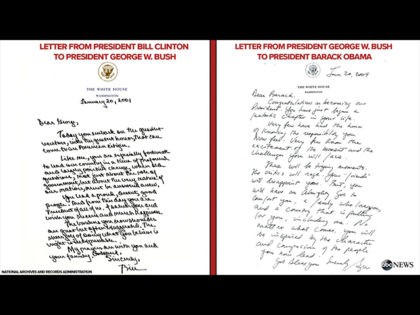 LETTER FROM PRESIDENT BILL CLINTON
TO PRESIDENT GEORGE W. BUSH
THE WHITE HOUSE
WASHINGTON
January 20, 2001
Dear George,
Today you embark on the
venture, with the greatest honor, that can
come to an American citizen.
Like me, you are especially fortunate
to lead our country in a time of profound
and largely positive change, when old
questions, not just about the role of
government, but about the very nature of
our nation, must be answered anew.
You lead a proud, decent, good
people. And from this day you are
President of all of us. I salute you and
wish you success and much happiness.
The burdens you now shoulder
are great but often exaggerated. The
sheer joy of doing what you believe is
right is inexpressible.
My prayers are with you and
your family. Godspeed.
Sincerely,
Bill
NATIONAL ARCHIVES AND RECORDS ADMINISTRATION
LETTER FROM PRESIDENT GEORGE W. BUSH
TO PRESIDENT BARACK OBAMA
Jan 20, 2009
THE WHITE HOUSE
WASHINGTON
Dear Barack,
Congratulations on becoming our
President. You have just begun a
fantastic chapter in your life.
Very few have had the honor
of knowing the responsibility you
now feel. Very few know the
excitement of the moment and the
challenges you will face.
There will be trying moments.
The critics will rage. Your "friends"
will disappoint you. But, you
will have an Almighty God to
comfort you, a family who loves you,
and a country that is pulling
for you, including me. No
matter what comes, you will
be inspired by the character
and compassion of the people
you now lead.
God bless you.
Sincerely,
abc NEWS